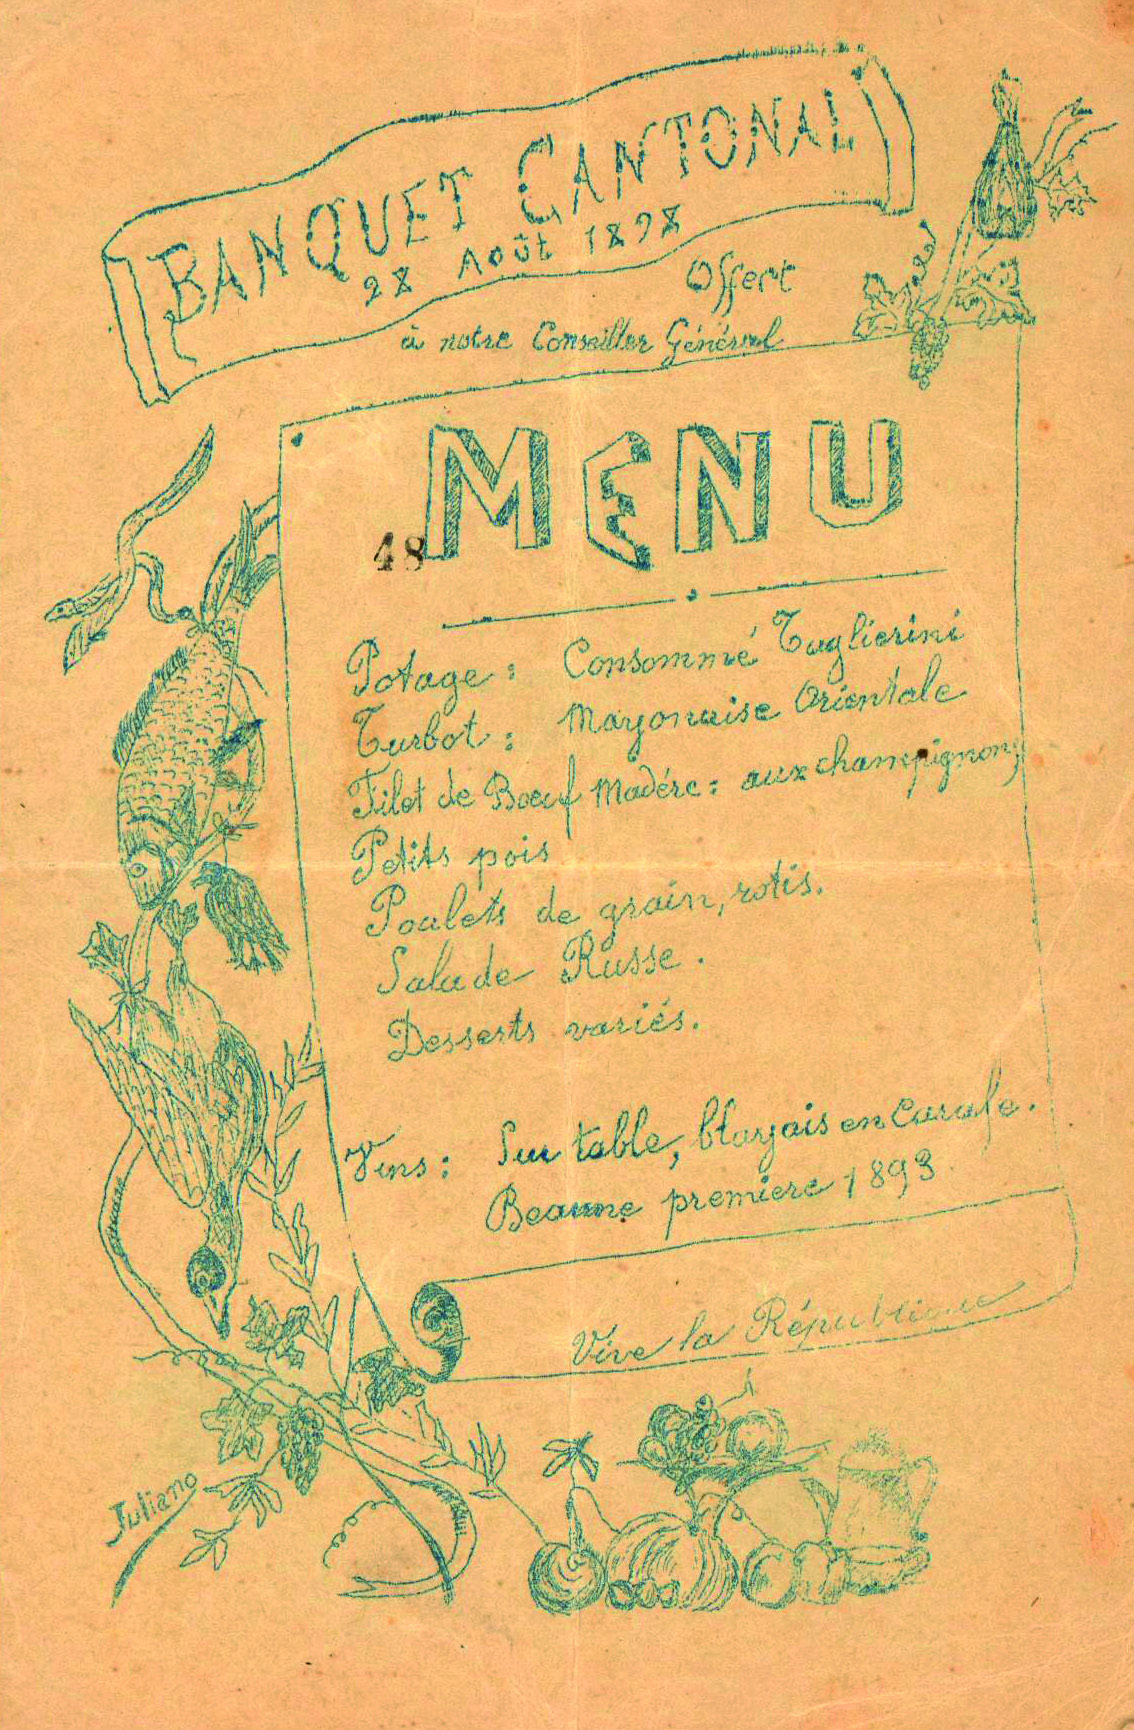 BANQUET CANTONAL
28 Août 1898
Offert
à notre Conseiller Général
MENU
48
Potage : Consommé Taglierini
Turbot : Mayonaise Orientale
Filet de Boeuf Madére : aux champignons
Petits pois
Poulets de grain, rotis.
Salade Russe.
Desserts variés.
Vins : Sur table, blayais en Carafe.
Beaune premiere 1893
Vive la République
Juliano